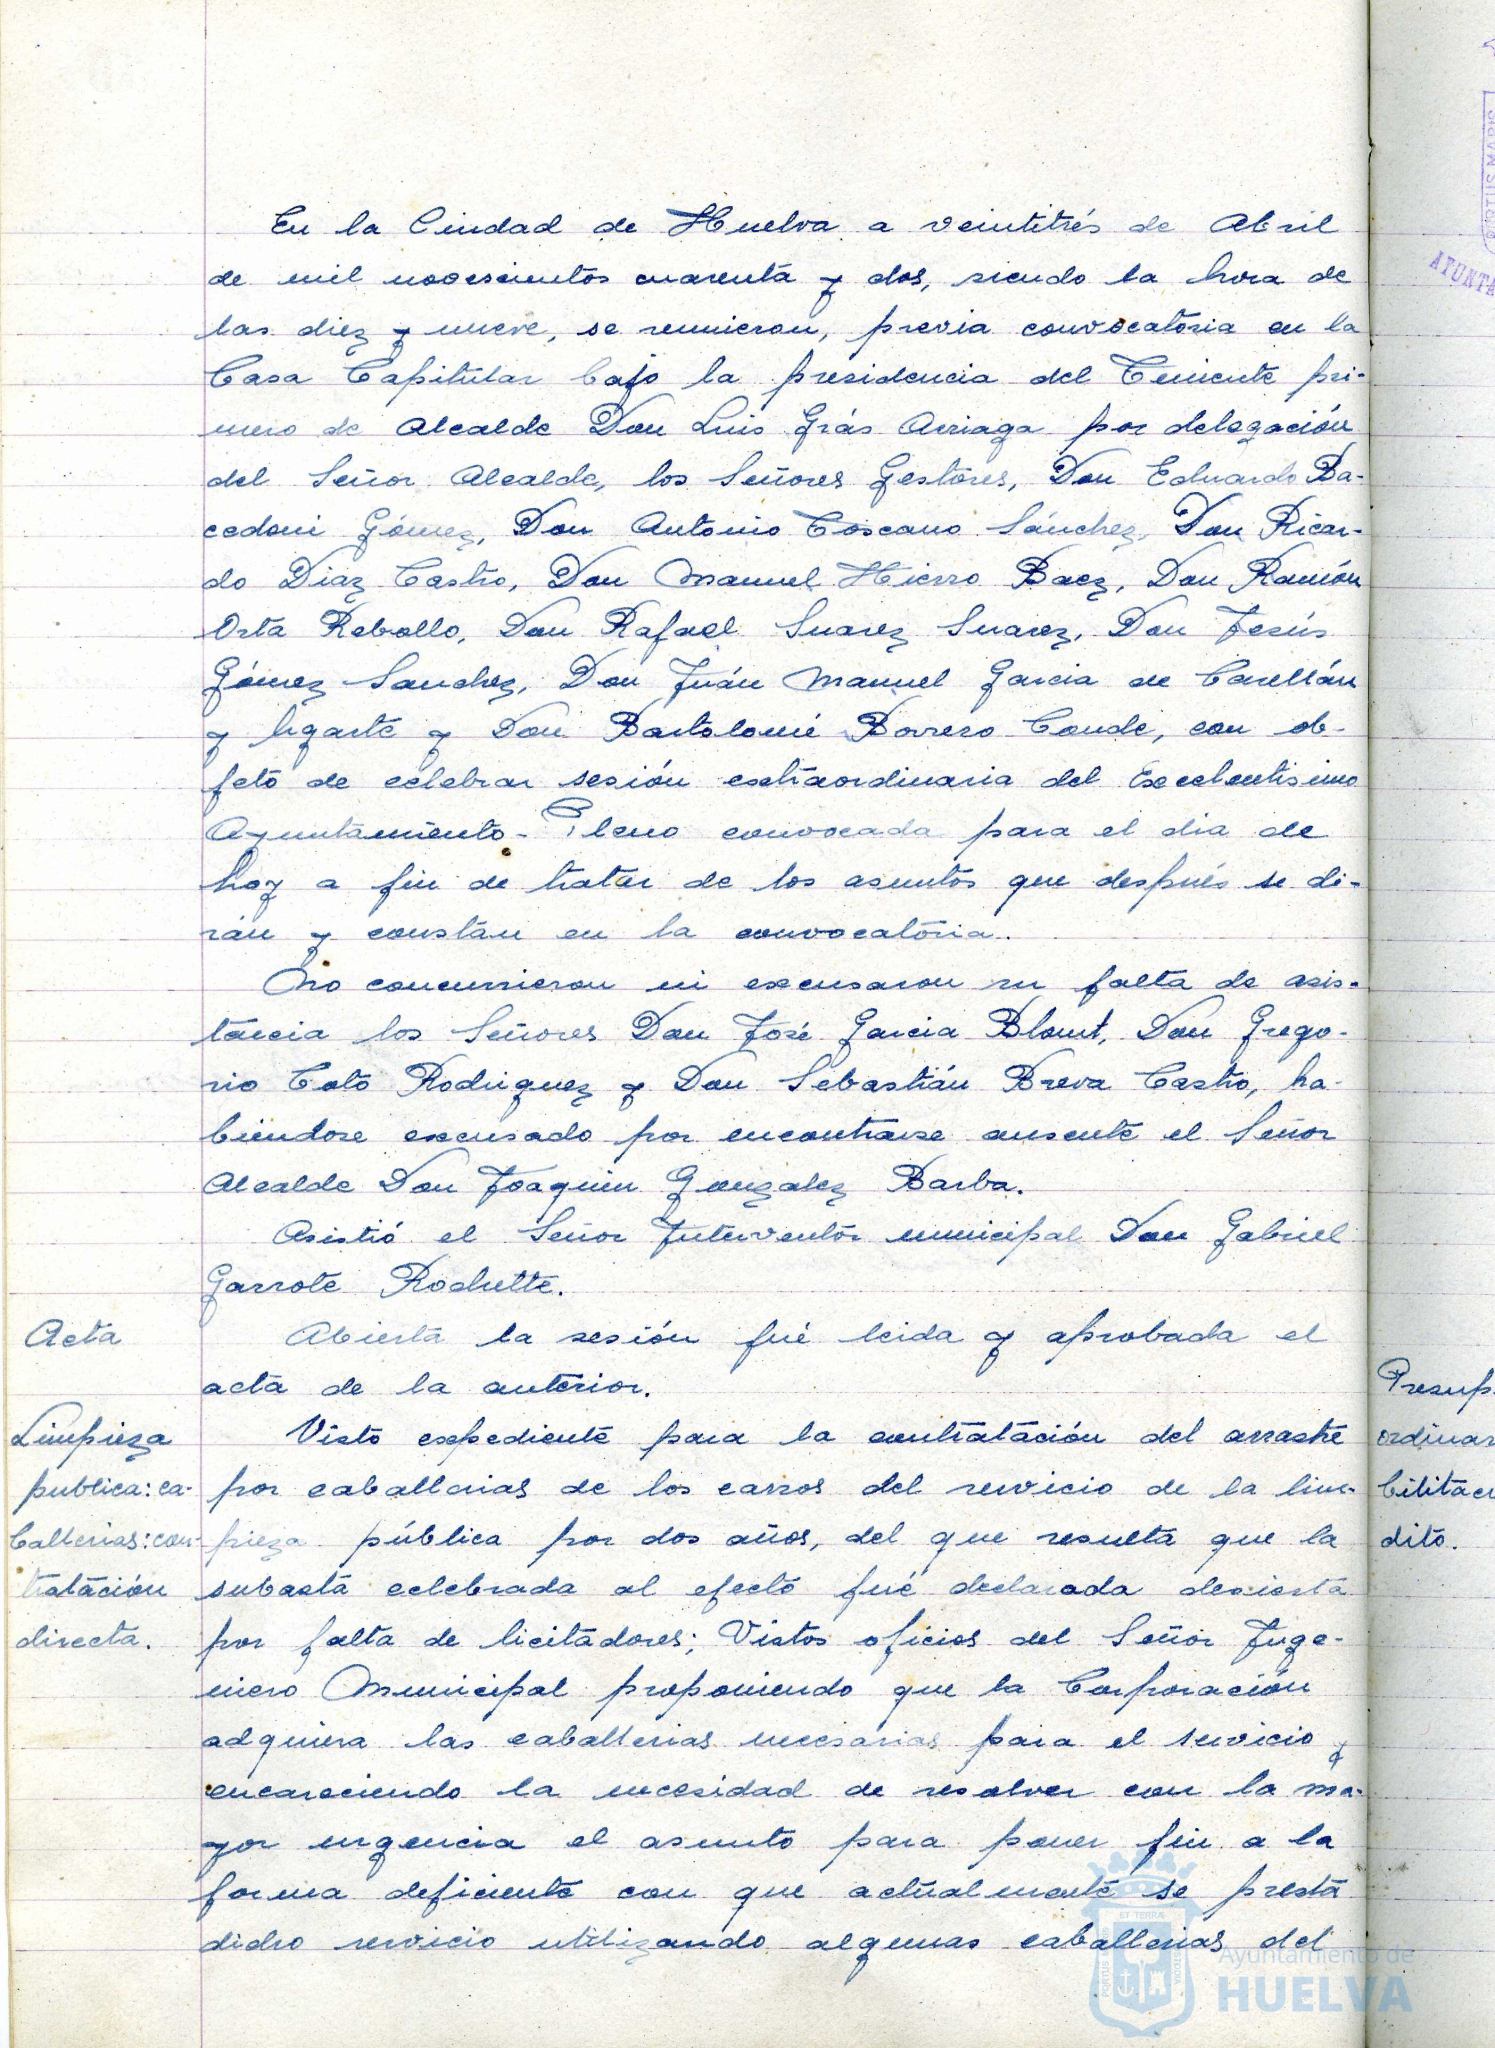 En la Ciudad de Huelva a veintitrés de Abril
de mil novescientos cuarenta y dos, siendo la hora de
las diez y nueve, se reunieron, previa convocatoria en la
Casa Capitular bajo la presidencia del Teniente pri-
mero de Alcalde Don Luis Grás Arriaga por delegación
del Señor Alcalde, los Señores Gestores, Don Eduardo Ba-
cedoni Gómez, Don Antonio Toscano Sánchez, Don Ricar-
do Diaz Castro, Don Manuel Hierro Baez, Don Ramón
Orta Rebollo, Don Rafael Suarez Suarez, Don Jesús
Gómez Sanchez, Don Juán Manuel Garcia de Carellán
y Ugarte y Don Bartolomé Borrero Conde, con ob-
jeto de celebrar sesión extraordinaria del Excelentisimo
Ayuntamiento-Pleno convocada para el dia de
hoy a fin de tratar de los asuntos que después se di-
rán y constán en la convocatoria.
No concurrieron ni excusaron su falta de asis-
tancia los Señores Don José Garcia Blount, Don Grego-
rio Coto Rodriguez y Don Sebastián Breva Castro, ha-
biendose excusado por encontrarse ausente el Señor
Alcalde Don Joaquin Gonzalez Barba.
Asistió el Señor Interventor municipal Don Gabriel
Garrote Rochette.
Acta
Abierta la sesión fué leida y aprobada el
acta de la anterior.
Limpieza
publica: ca-
ballerias: con-
tratación
directa.
Visto expediente para la contratación del arrastre
por caballerias de los carros del servicio de la lim-
pieza pública por dos años, del que resulta que la
subasta celebrada al efecto fué declarada desierta
por falta de licitadores; Vistos oficios del Señor Inge-
niero Municipal proponiendo que la Corporación
adquiera las caballerias necesarias para el servicio y
encareciendo la necesidad de resolver con la ma-
yor urgencia el asunto para poner fin a la
forma deficiente con que actualmente se presta
dicho servicio utilizando algunas caballerias del
Presup.
ordinar
bilitaci
dito.
PORTUS MARIS
AYUNTA
Ayuntamiento de
HUELVA